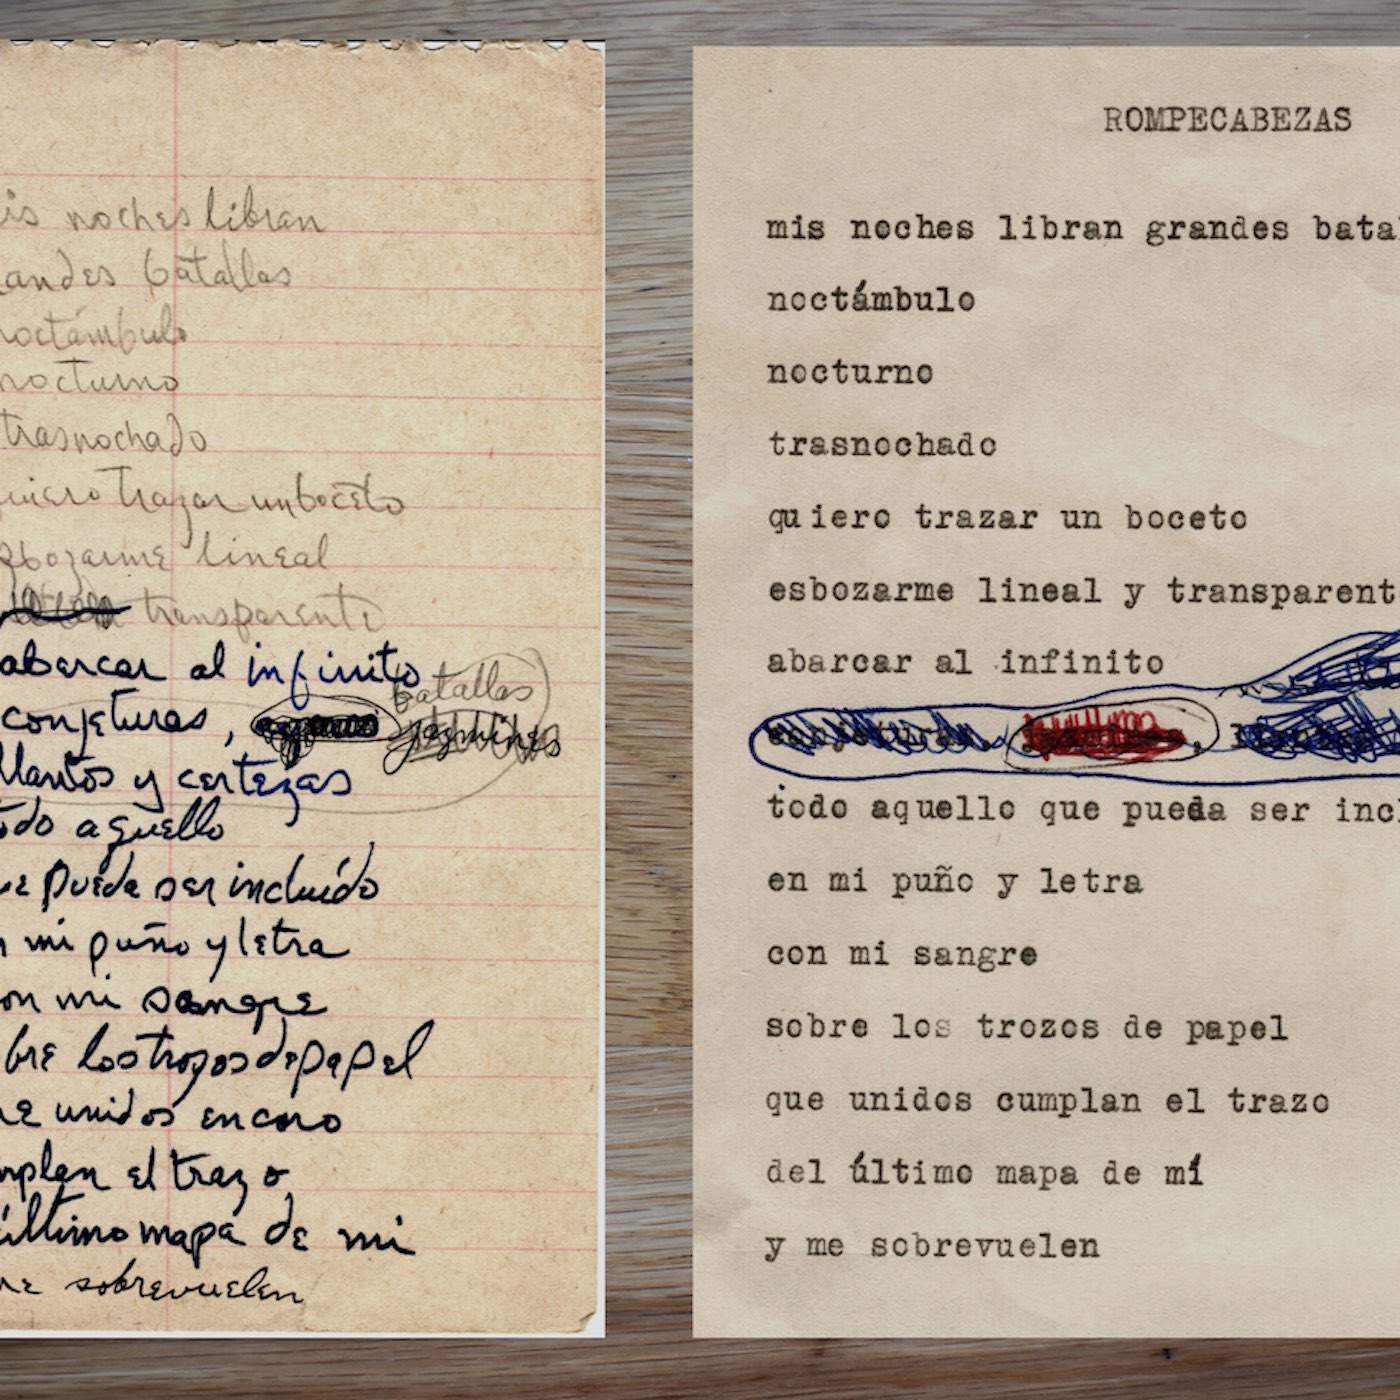 is noches libran
andes batallas
noctámbulo
nocturno
trasnochado
uiero trazar un boceto
sbozarme lineal
transparente
abarcar al infinito
batallas
conjeturas, jazmines
llantos y certezas
odo aquello
ue pueda ser incluído
n mi puño y letra
on mi sangre
bre los trozos de papel
ue unidos en coro
mplan el trazo
último mapa de mi
me sobrevuelen
ROMPECABEZAS
mis noches libran grandes bata
noctámbulo
nocturno
trasnochado
quiero trazar un boceto
esbozarme lineal y transparent
abarcar al infinito
todo aquello que pueda ser incl
en mi puño y letra
con mi sangre
sobre los trozos de papel
que unidos cumplan el trazo
del último mapa de mí
y me sobrevuelen